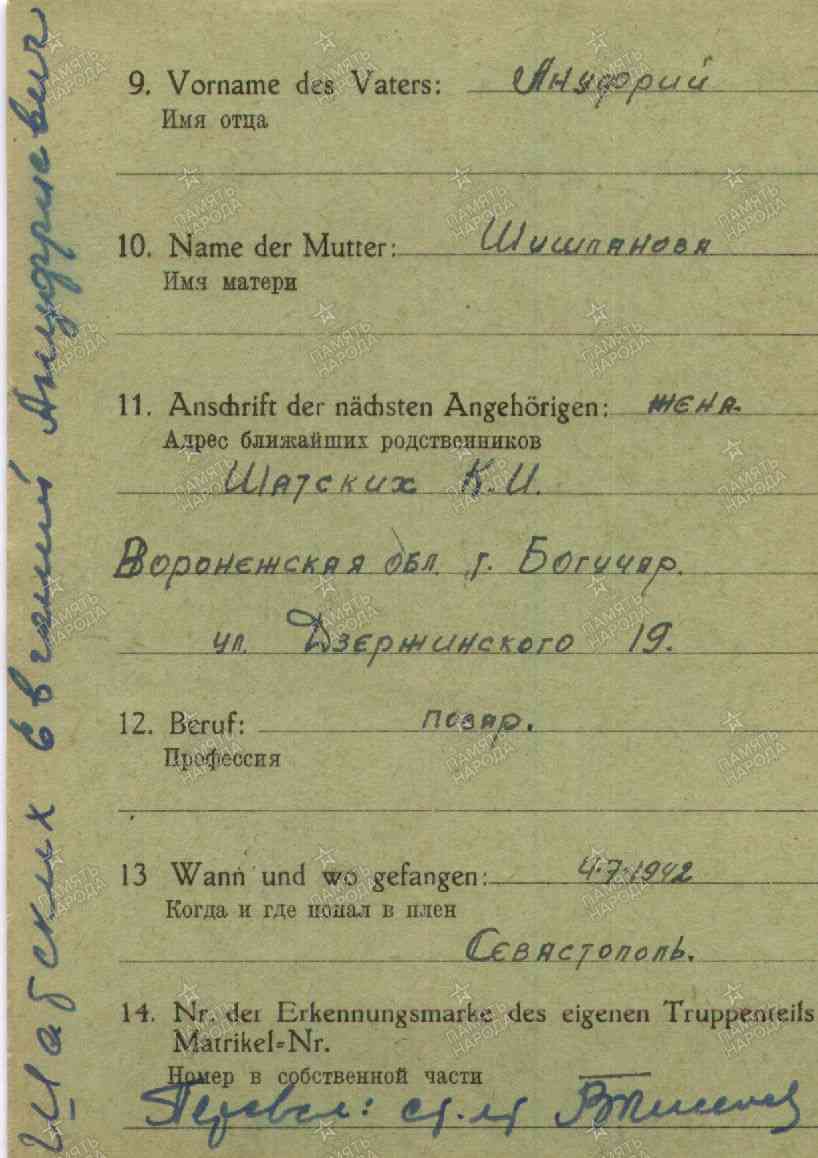 9. Vorname des Vaters: Ануфрий
Имя отца
10. Name der Mutter: Шишланова
Имя матери
11. Anschrift der nächsten Angehörigen: жена.
Адрес ближайших родственников
Шатских К.И.
Воронежская обл. г. Богучар.
ул. Дзержинского 19.
12. Beruf: повар.
Профессия
13 Wann und wo gefangen: 4.7.1942
Когда и где попал в плен
Севастополь.
14. Nr. der Erkennungsmarke des eigenen Truppenteils
Matrikel=Nr.
Номер в собственной части
Перевел:
Шатских Евгений Ануфриевич
ПАМЯТЬ
НАРОДА